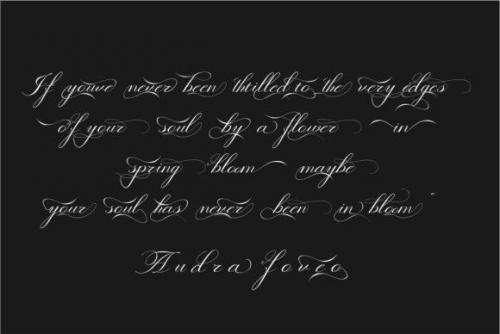 If youve never been thtilled to the very edges
of your soul by a flower in
spring bloom maybe
your soul has never been in bloom "
Audra Foveo